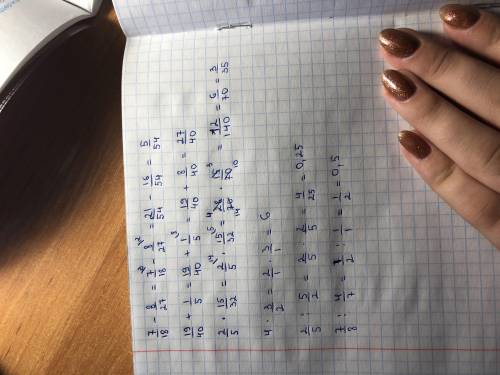 7/18 - 8/27 = 7/18 - 8/27 = 21/54 - 16/54 = 5/54
19/40 + 1/5 = 19/40 + 1/5 = 19/40 + 8/40 = 27/40
2/5 · 15/32 = 2/5 · 15/32 = = 12/140 = 6/70 = 3/35
4 · 3/2 = 2/1 · 3/1 = 6
2/5 : 5/2 = 2/5 · 2/5 = 4/25 = 0,25
7/8 : 4/7 = 1/2 · 1/1 = 1/2 = 0,5